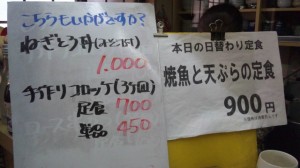 こちらもいかがですか?
ねぎとろ丼
1.000
手作りコロッケ(3ヶ)
定食 700
単品 450
本日の日替わり定食
焼魚と天ぷらの定食
900円